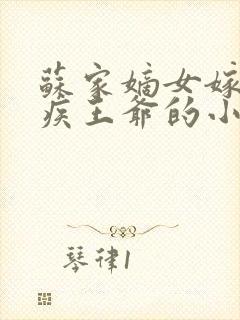 蘇家嫡女嫁
疾王爺的小
琴律1